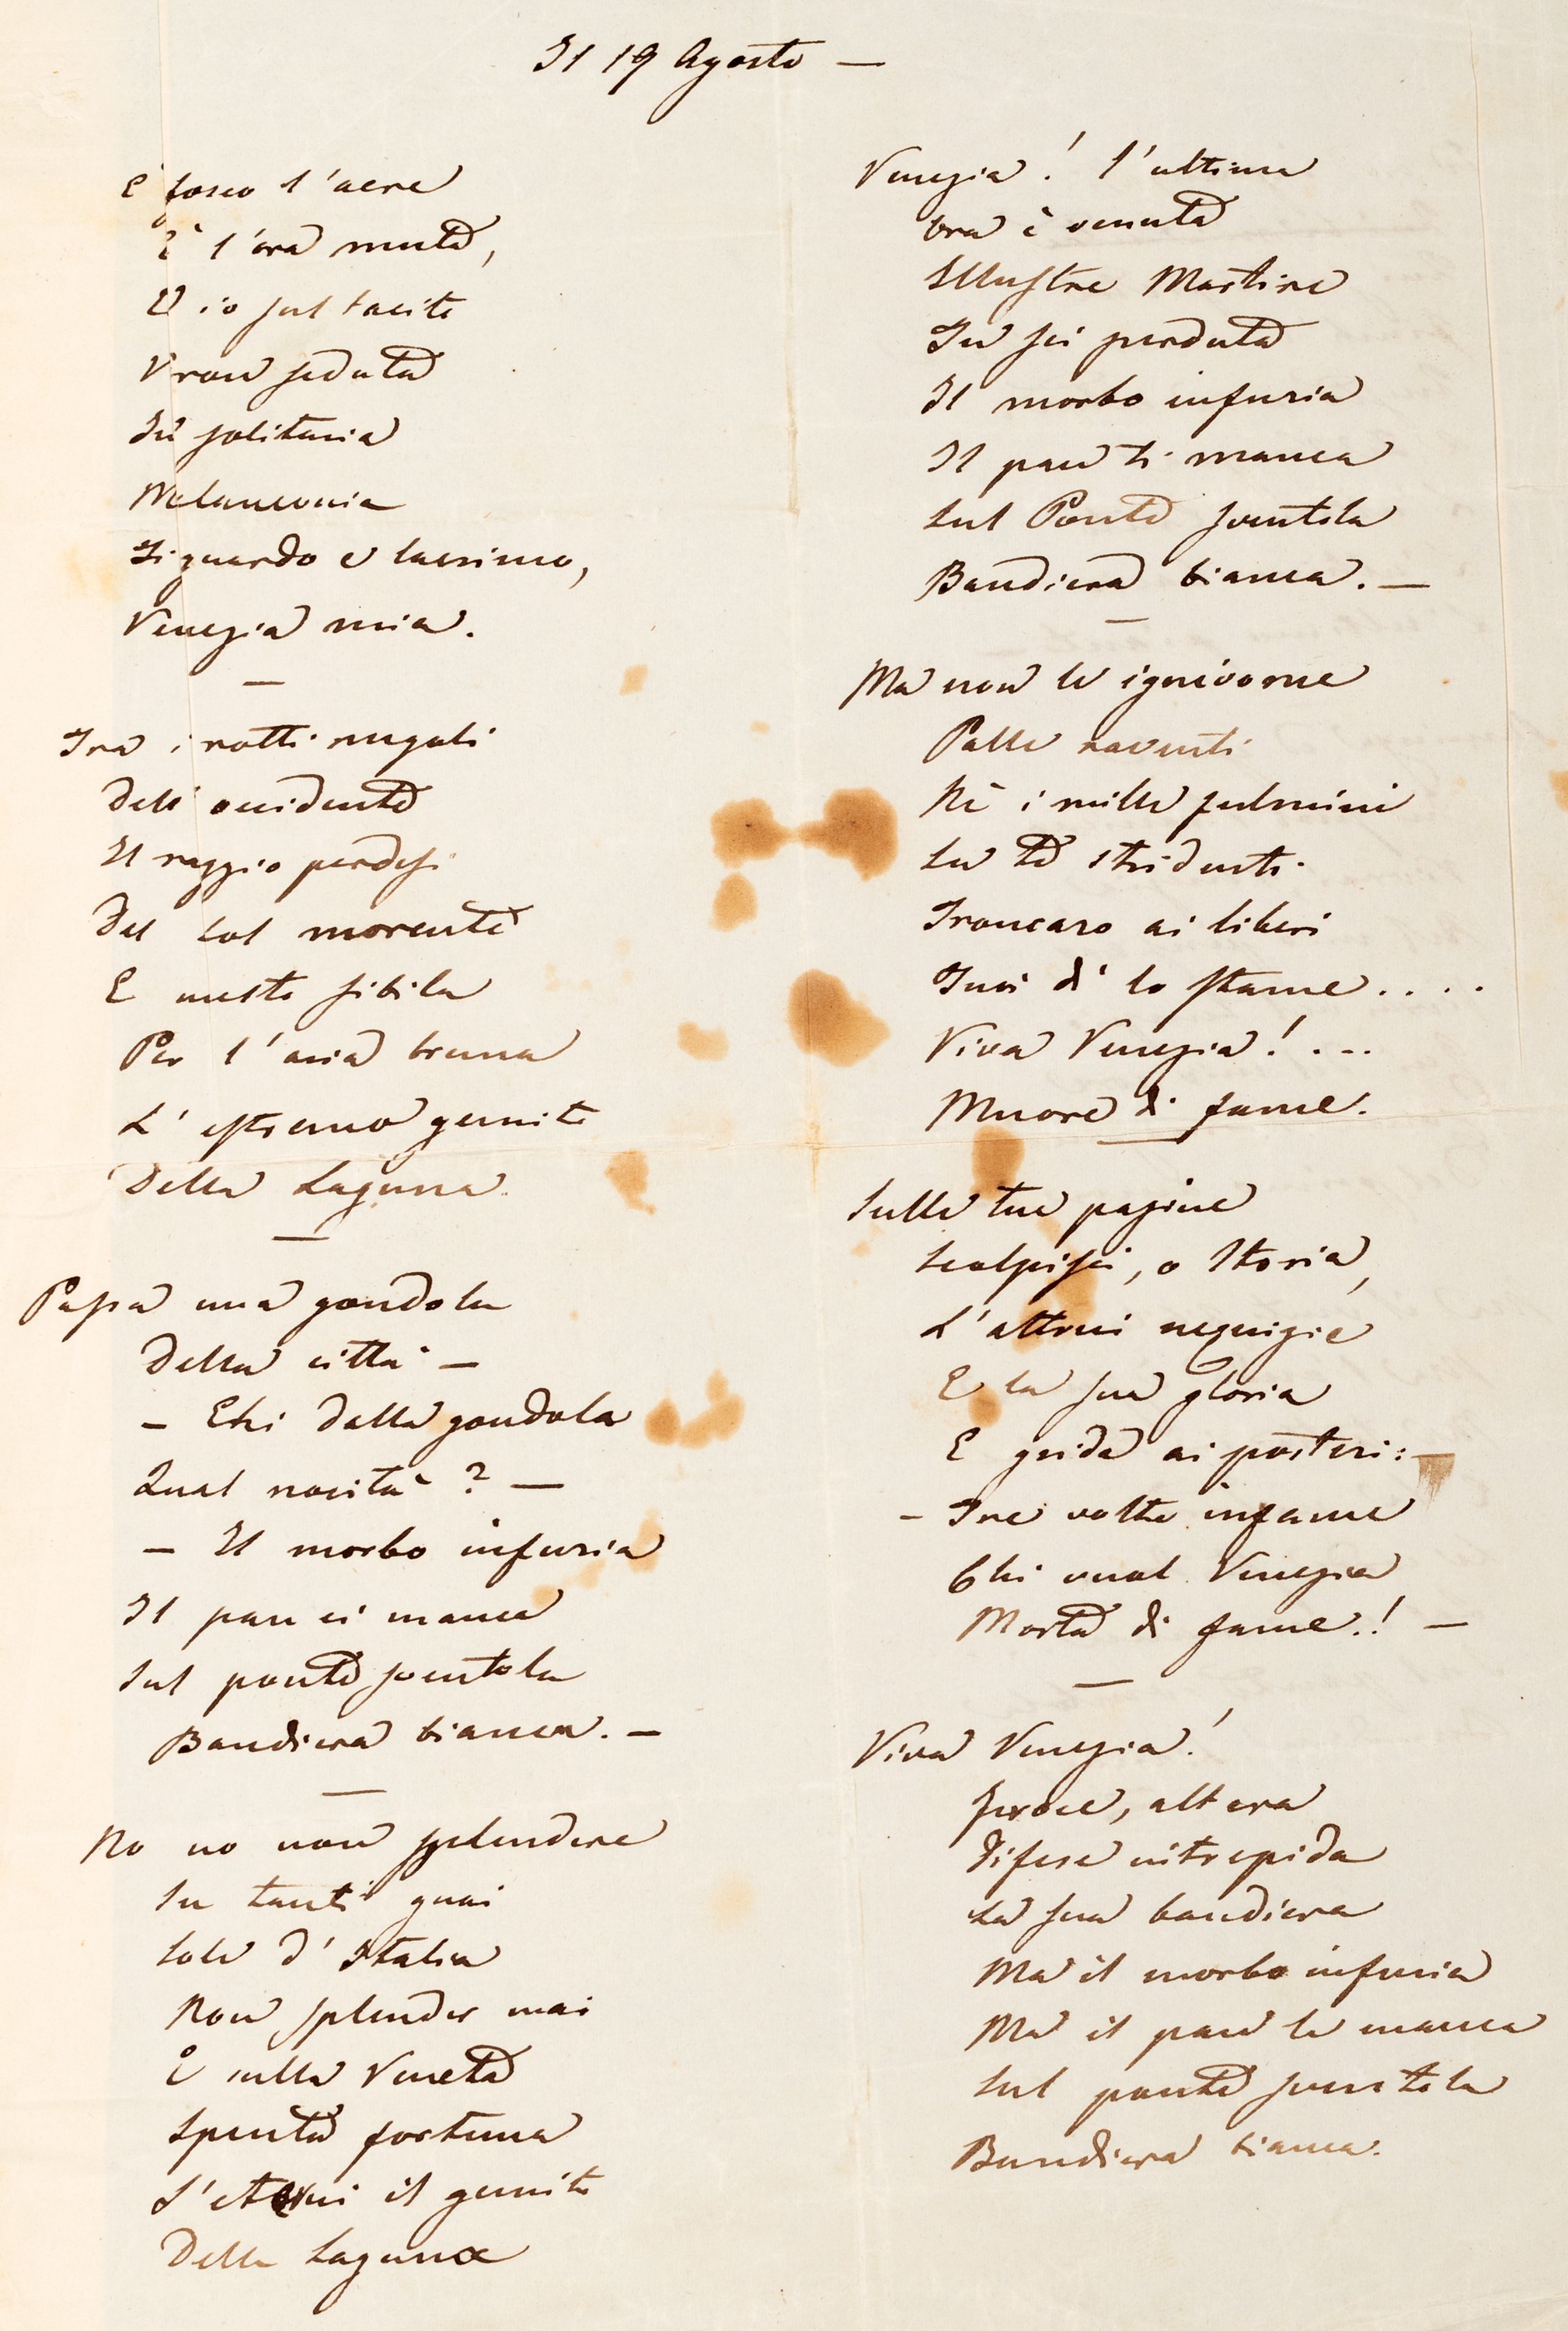 Il 19 Agosto —
È fosco l'aere
È l'ora muta,
E io sul tacito
Veron seduta
In solitaria
Melanconia
Ti guardo e lacrimo,
Venezia mia.
—
Tra i rotti nugoli
Dell'occidente
Il raggio perdesi
Del Sol morente
E mesto sibila
Per l'aria bruna
L'estremo gemito
Della Laguna.
—
Passa una gondola
Della città —
— Ehi dalla gondola
Qual novità? —
— Il morbo infuria
Il pan ci manca
Sul ponte sventola
Bandiera bianca. —
—
No no non splendere
Su tanti guai
Sole d'Italia
Non splender mai
E sulla Veneta
Spenta fortuna
S'eterni il gemito
Della Laguna
Venezia! l'ultima
Ora è venuta
Illustre Martire
Tu sei perduta
Il morbo infuria
Il pan ti manca
Sul Ponte sventola
Bandiera bianca. —
—
Ma non le ignivome
Palle roventi
Nè i mille fulmini
Su te stridenti
Troncaro ai liberi
Tuoi dì lo stame....
Viva Venezia!...
Muore di fame.
—
Sulle tue pagine
Scolpisci, o Storia,
L'altrui nequizie
E la sua gloria
E grida ai posteri: —
— Tre volte infame
Chi vuol Venezia
Morta di fame.! —
—
Viva Venezia!
Feroce, altera
Difese intrepida
La sua bandiera
Ma il morbo infuria
Ma il pan le manca
Sul ponte sventola
Bandiera bianca.